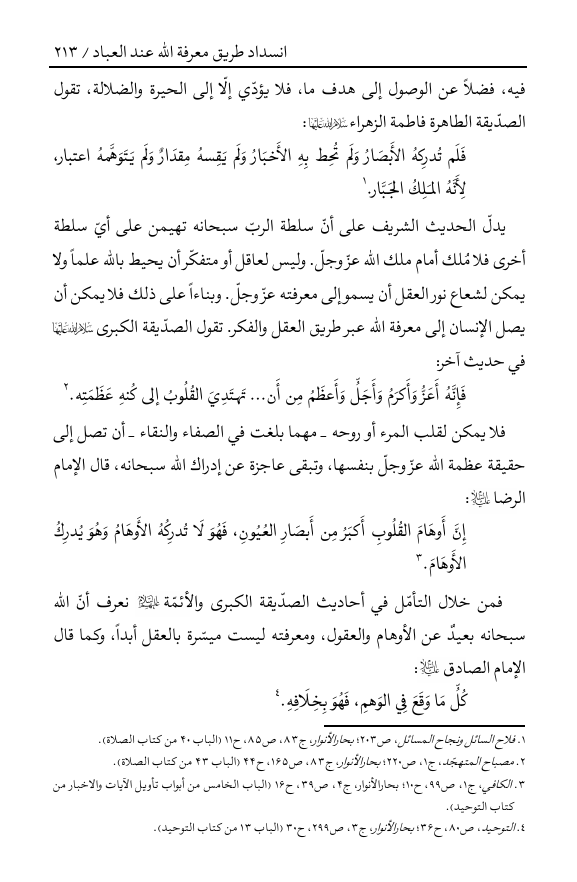 انسداد طريق معرفة الله عند العباد / ٢١٣
فيه، فضلاً عن الوصول إلى هدف ما، فلا يؤدّي إلّا إلى الحيرة والضلالة، تقول
الصدّيقة الطاهرة فاطمة الزهراء سلام الله عليها:
فَلَم تُدرِكهُ الأَبْصَارُ وَلَم تُحِط بِهِ الأَخبَارُ وَلَم يَقِسهُ مِقدَارٌ وَلَم يَتَوَهَّمهُ اعتبار،
لِأَنَّهُ المَلِكُ الجَبَّار.١
يدلّ الحديث الشريف على أنّ سلطة الربّ سبحانه تهيمن على أيّ سلطة
أخرى فلا مُلك أمام ملك الله عزّ وجلّ. وليس لعاقل أو متفكّر أن يحيط بالله علماً ولا
يمكن لشعاع نور العقل أن يسمو إلى معرفته عزّ وجلّ. وبناءاً على ذلك فلا يمكن أن
يصل الإنسان إلى معرفة الله عبر طريق العقل والفكر. تقول الصدّيقة الكبرى سلام الله عليها
في حديث آخر:
فَإِنَّهُ أَعَزُّ وَأَكرَمُ وَأَجَلُّ وَأَعظَمُ مِن أَن... تَهتَدِيَ القُلُوبُ إلى كُنهِ عَظَمَتِه.٢
فلا يمكن لقلب المرء أو روحه ـ مهما بلغت في الصفاء والنقاء ـ أن تصل إلى
حقيقة عظمة الله عزّ وجلّ بنفسها، وتبقى عاجزة عن إدراك الله سبحانه، قال الإمام
الرضا عليه السلام:
إِنَّ أَوهَامَ القُلُوبِ أَكبَرُ مِن أَبصَارِ العُيُونِ، فَهُوَ لَا تُدرِكُهُ الأَوهَامُ وَهُوَ يُدرِكُ
الأَوهَامَ.٣
فمن خلال التأمّل في أحاديث الصدّيقة الكبرى والأئمّة عليهم السلام نعرف أنّ الله
سبحانه بعيدٌ عن الأوهام والعقول، ومعرفته ليست ميسّرة بالعقل أبداً، وكما قال
الإمام الصادق عليه السلام:
كُلُّ مَا وَقَعَ فِي الوَهمِ، فَهُوَ بِخِلَافِهِ.٤
١. فلاح السائل ونجاح المسائل، ص٢٠٣؛ بحارالأنوار، ج٨٣، ص٨٥، ح١١ (الباب ٤٠ من كتاب الصلاة).
٢. مصباح المتهجّد، ج١، ص٢٢٠؛ بحارالأنوار، ج٨٣، ص١٦٥، ح٤٤ (الباب ٤٣ من كتاب الصلاة).
٣. الكافي، ج١، ص٩٩، ح١٠؛ بحارالأنوار، ج٤، ص٣٩، ح١٦ (الباب الخامس من أبواب تأويل الآيات والاخبار من
كتاب التوحيد).
٤. التوحيد، ص٨٠، ح٣٦؛ بحارالأنوار، ج٣، ص٢٩٩، ح٣٠ (الباب ١٣ من كتاب التوحيد).